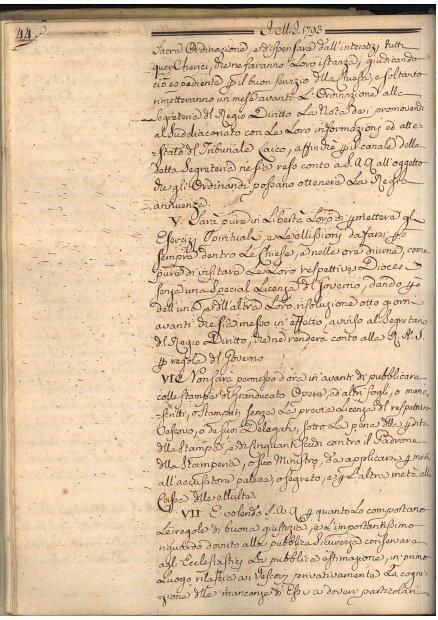 44
I. M. I. 1793
Sacra Ordinazione, e dispensare dall'interstizj tutti
quei Cherici, che ne faranno Loro istanza, giudicando
ciò espediente p il buon servizio della Chiesa, e soltanto
rimetteranno un mese avanti L'Ordinazione alla
Segreteria del Regio Diritto La Nota dei promovendi
al Suddiaconato con Le Loro informazioni ed atte-
stato del Tribunale Laico, affinchè p il canale della
detta Segreteria ne sia reso conto a S. A. R. all'oggetto
che gli Ordinandi possano ottenere La Regia
annuenza.
V. Sarà pure in Libertà Loro di pmettere gli
Esercizj Spirituali, e Le Missioni da farsi p
sempre dentro Le Chiese, e nelle ore diurne, come
pure di visitare Le Loro respettive Diocesi
senza una Special Licenza del Governo, dando p
dell'una, e dell'altra Loro risoluzione otto giorni
avanti che sia messo in effetto, avviso al Segretario
del Regio Diritto, che ne renderà conto alla R. A. S.
p regola del Governo
VI. Non sarà permesso d'ora in avanti di pubblicare
colle stampe del Granducato Opere, ed altri fogli, o mano-
scritti, o stampati senza La previa Licenza del respettivo
Vescovo, o da suoi Delegati, sotto La pena della pdita
della Stampa, e di cinquanta scudi contro il Padrone
della Stamperia, o suo Ministro, da applicarsi p metà
all'accusatore palese, o segreto, e p L'altra metà alla
Cassa delle Multe.
VII. E volendo S. A. R. p quanto Lo comportano
Le regole di buona giustizia, e L'importantissimo
riguardo dovuto alla pubblica Sicurezza conservare
agli Ecclesiastici La pubblica estimazione, in primo
Luogo rilascia ai Vescovi privativamente La cogni-
zione delle mancanze di Essi ai doveri particolari